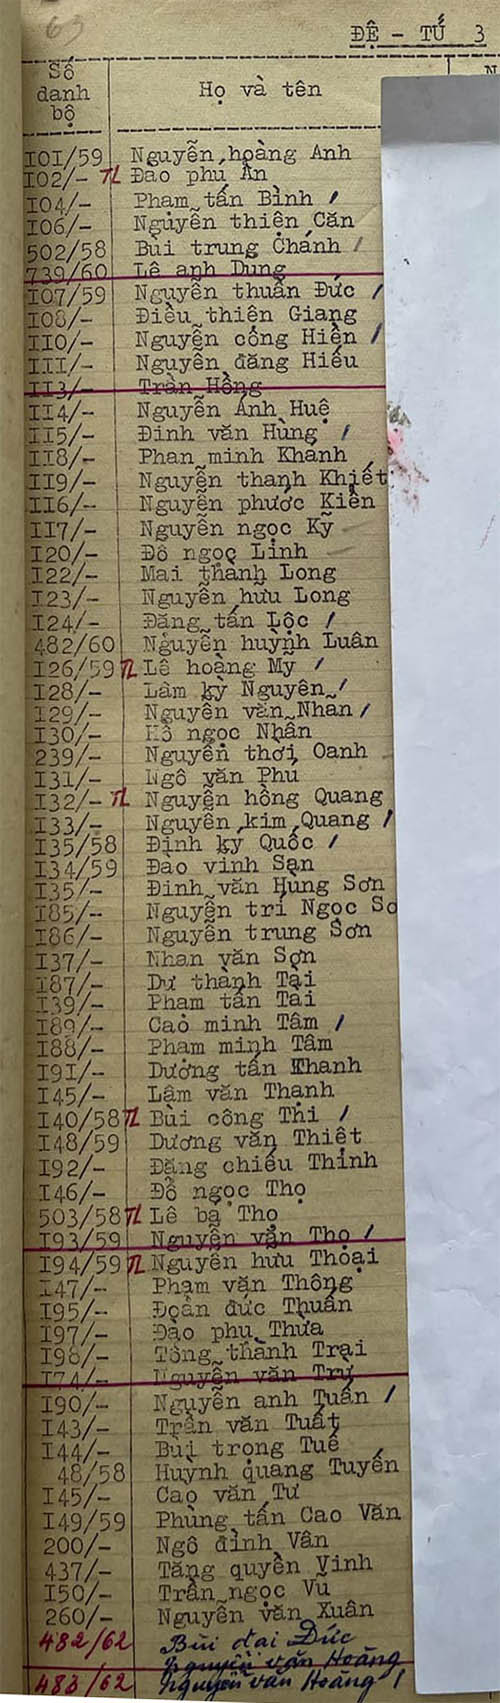 63
ĐỆ - TỨ 3
Số danh bộ
Họ và tên
N
I01/59 Nguyễn hoàng Anh
I02/- TL Đào phu Ân
I04/- Phạm tấn Bình /
I06/- Nguyễn thiện Căn
502/58 Bùi trung Chánh /
739/60 Lê anh Dung
I07/59 Nguyễn thuần Đức /
I08/- Điều thiên Giang
II0/- Nguyễn công Hiền /
III/- Nguyễn đăng Hiếu
II3/- Trần Hồng
II4/- Nguyễn Ánh Huệ
II5/- Đinh văn Hùng /
II8/- Phan minh Khanh
II9/- Nguyễn thanh Khiết
II6/- Nguyễn phước Kiên
II7/- Nguyễn ngọc Kỹ
I20/- Đỗ ngọc Linh
I22/- Mai thành Long
I23/- Nguyễn hữu Long
I24/- Đặng tấn Lộc /
482/60 Nguyễn huỳnh Luân
I26/59 TL Lê hoàng Mỹ /
I28/- Lâm kỳ Nguyên /
I29/- Nguyễn văn Nhan /
I30/- Hồ ngọc Nhân
239/- Nguyễn thới Oanh
I31/- Ngô văn Phu
I32/- TL Nguyễn hồng Quang
I33/- Nguyễn kim Quang /
I35/58 Định ký Quốc /
I34/59 Đào vinh Sạn
I35/- Đinh văn Hùng Sơn
I85/- Nguyễn trí Ngọc Sơ
I86/- Nguyễn trung Sơn
I37/- Nhan văn Sơn
I87/- Dư thành Tài
I39/- Phạm tấn Tài
I89/- Cao minh Tâm /
I88/- Phạm minh Tâm
I9I/- Dương tấn Thanh
I45/- Lâm văn Thạnh
I40/58 TL Bùi công Thi /
I48/59 Dương văn Thiệt
I92/- Đặng chiếu Thinh
I46/- Đỗ ngọc Thọ
503/58 TL Lê bá Thọ
I93/59 Nguyễn văn Thọ /
I94/59 TL Nguyễn hưu Thoại
I47/- Phạm văn Thông
I95/- Đoàn đức Thuần
I97/- Đào phụ Thừa
I98/- Tống thành Trại
I74/- Nguyễn văn Trự
I90/- Nguyễn anh Tuấn /
I43/- Trần văn Tuất
I44/- Bùi trọng Tuế
48/58 Huỳnh quang Tuyến
I45/- Cao văn Tư
I49/59 Phùng tấn Cao Văn
200/- Ngô đình Vân
437/- Tăng quyền Vinh
I50/- Trần ngọc Vũ
260/- Nguyễn văn Xuân
482/62 Bùi đai Đức
Nguyễn văn Hoàng
483/62 Nguyễn văn Hoàng /